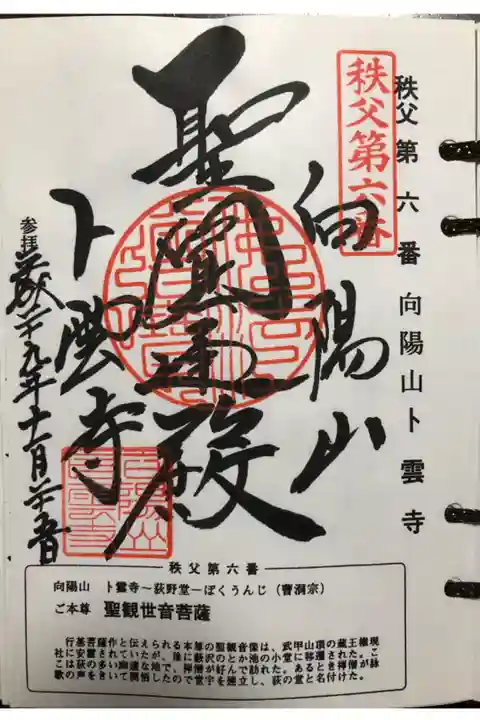 秩父第六番 向陽山卜雲寺
秩父第六番
向陽山
聖 殿
卜雲寺
参拝 二十九年十一月
秩父第六番
向陽山 卜雲寺～荻野堂―ぼくうんじ（曹洞宗）
ご本尊 聖観世音菩薩
行基菩薩作と伝えられる本尊の聖観音像は、武甲山頂の蔵王権現
社に安置されていたが、後に藪沢のとか池の小堂に移遷された。こ
こは荻の多い幽邃な地で、禅僧が好んで訪れた。あるとき禅僧が詠
歌の声をきいて開悟したので堂宇を建立し、荻の堂と名付けた。